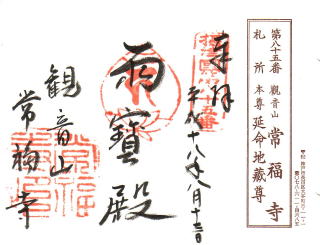 第八十五番 觀音山
札所 本尊 延命地蔵尊
常福寺
奉拝
平成十八年八月十三日
雨寶殿
観音山
常福寺